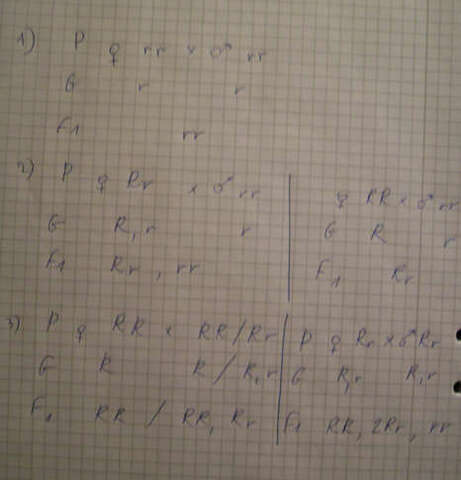 1) P ♀ rr x ♂ rr
G r r
F1 rr
2) P ♀ Rr x ♂ rr
G R, r r
F1 Rr, rr
♀ RR x ♂ rr
G R r
F1 Rr
3) P ♀ RR x RR/Rr
G R R / R, r
F1 RR / RR, Rr
P ♀ Rr x ♂ Rr
G R, r R, r
F1 RR, 2Rr, rr